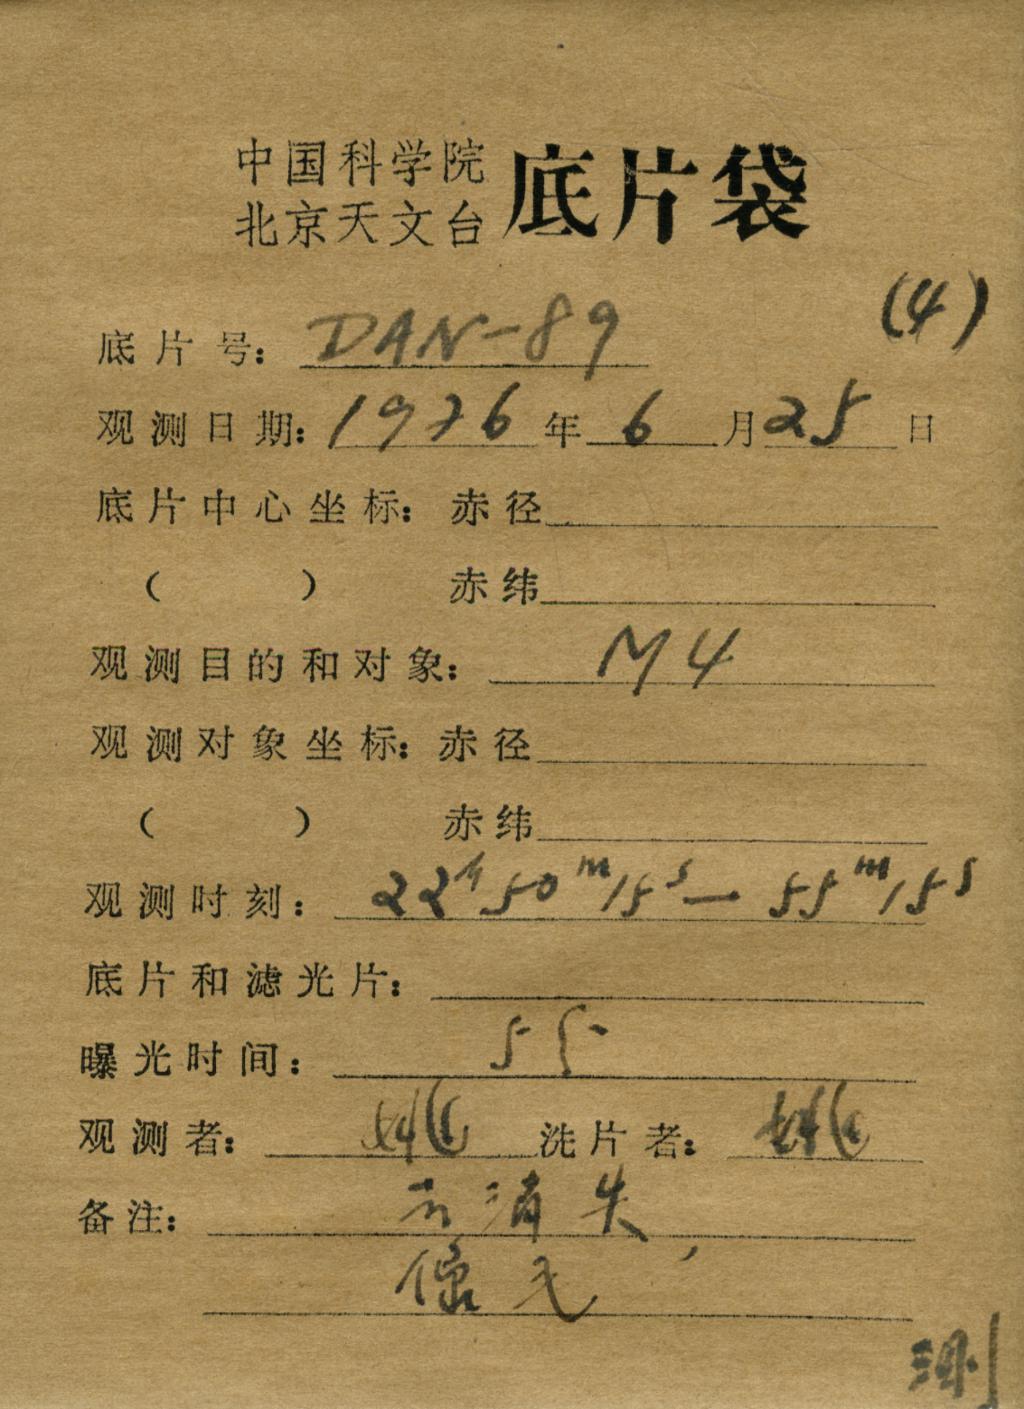 中国科学院
北京天文台 底片袋
(4)
底片号: DAN-89
观测日期: 1976年6月25日
底片中心坐标: 赤径
( ) 赤纬
观测目的和对象: M4
观测对象坐标: 赤径
( ) 赤纬
观测时刻: 22h50m15s—55m15s
底片和滤光片:
曝光时间: 5
观测者: 洗片者:
备注: 云消失,
像
测